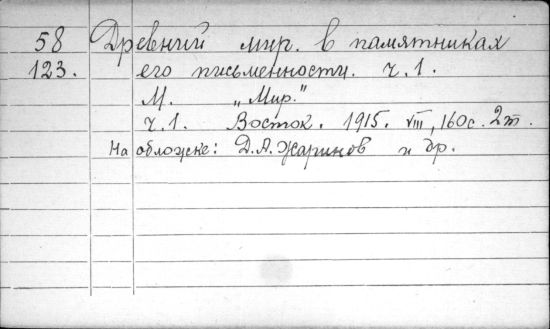 58 Древний мир. в памятниках
123. его письменности. ч.1.
М. „Мир.”
ч.1. Восток. 1915. VIII, 160с. 2т.
На обложке: Д.А. Жаринов и др.